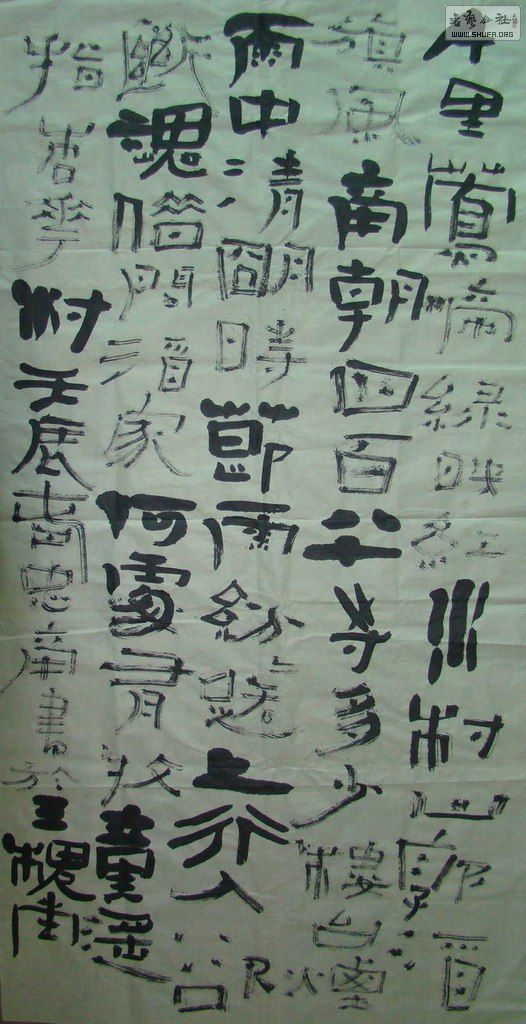 書藝公社
WWW.SHUFA.ORG
千里鶯啼綠映紅水村山郭酒
旗風南朝四百八十寺多少樓台煙
雨中清明時節雨紛〻路上行人欲
斷魂借問酒家何處有牧童遙
指杏華村壬辰春書於三槐